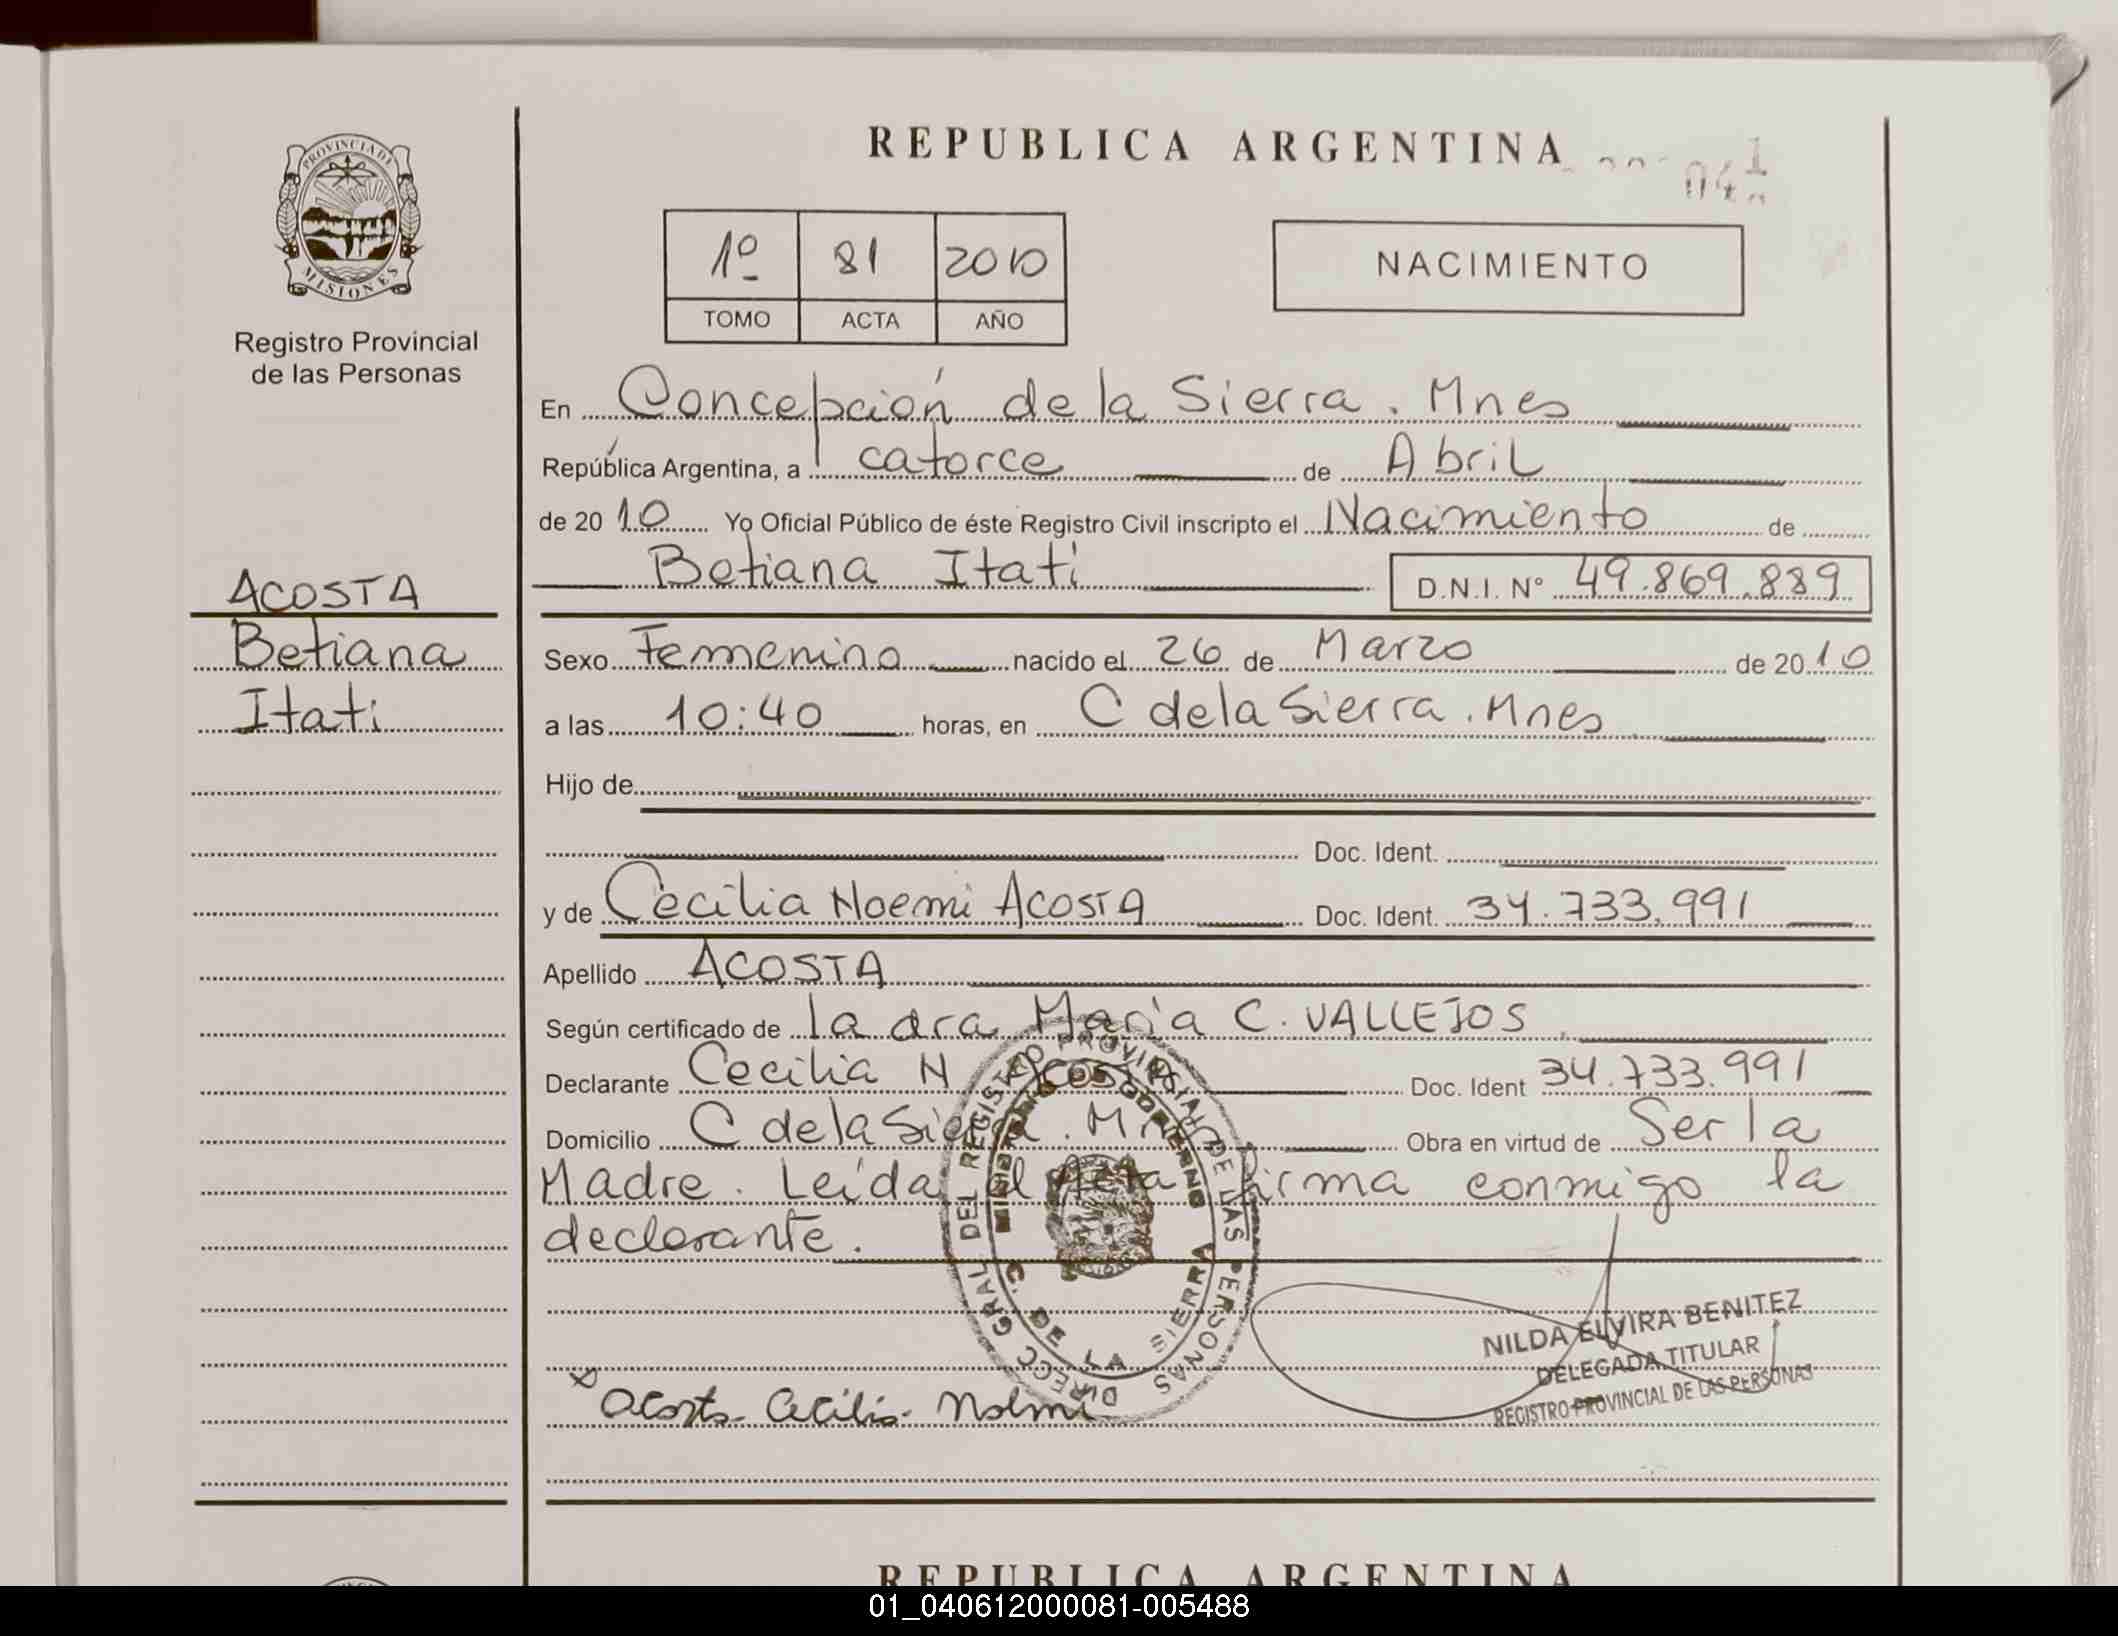 REPUBLICA ARGENTINA
PROVINCIA DE MISIONES
Registro Provincial
de las Personas
1º 81 2010
TOMO ACTA AÑO
NACIMIENTO
En Concepción de la Sierra. Mnes
República Argentina, a catorce de Abril
de 2010 Yo Oficial Público de éste Registro Civil inscripto el Nacimiento de
Betiana Itati D.N.I. Nº 49.869.889
ACOSTA
Betiana
Itati
Sexo Femenino nacido el 26 de Marzo de 2010
a las 10:40 horas, en C de la Sierra. Mnes
Hijo de
Doc. Ident.
y de Cecilia Noemi ACOSTA Doc. Ident. 34.733.991
Apellido ACOSTA
Según certificado de la dra Maria C. VALLEJOS
Declarante Cecilia N ACOSTA Doc. Ident 34.733.991
Domicilio C de la Sierra. Mnes Obra en virtud de Ser la
Madre. Leída el Acta firma conmigo la
declarante.
DIRECC GRAL DEL REGISTRO PROVINCIAL DE LAS PERSONAS
MINISTERIO DE GOBIERNO
C. DE LA SIERRA
NILDA ELVIRA BENITEZ
DELEGADA TITULAR
REGISTRO PROVINCIAL DE LAS PERSONAS
Acosta Cecilia Noemi
REPUBLICA ARGENTINA
01_040612000081-005488